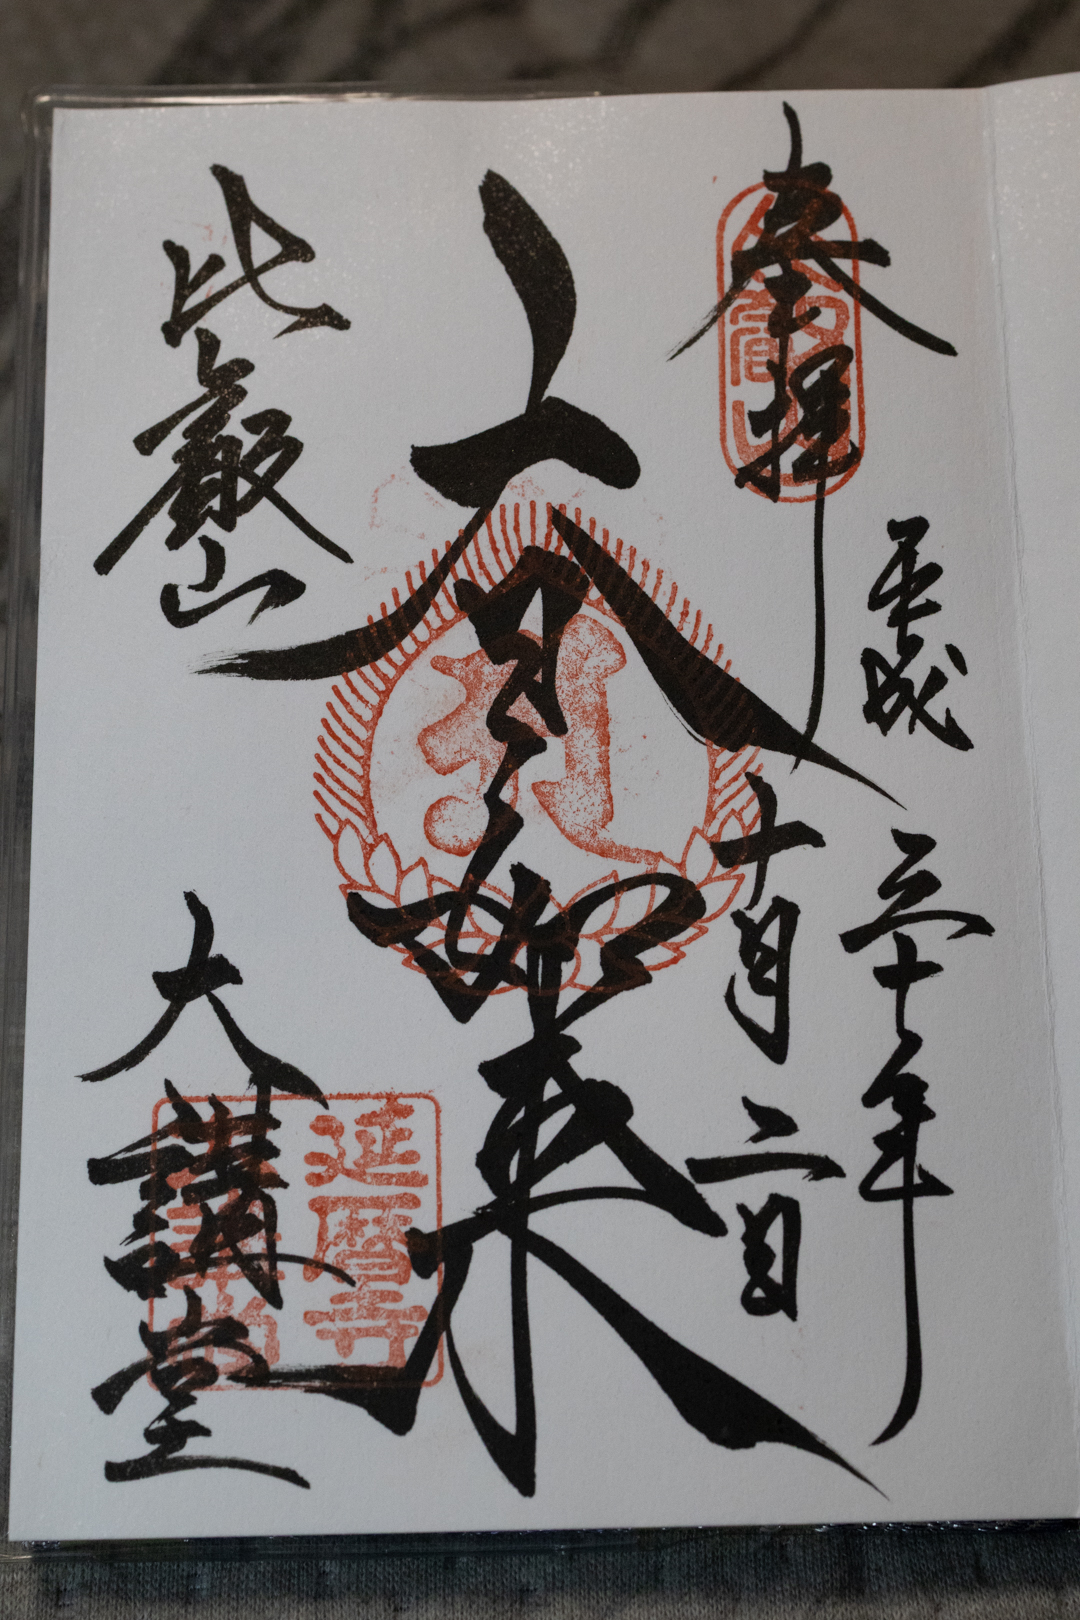 奉拝
平成三十年
十月二日
大日如来
比叡山
大講堂
延暦寺